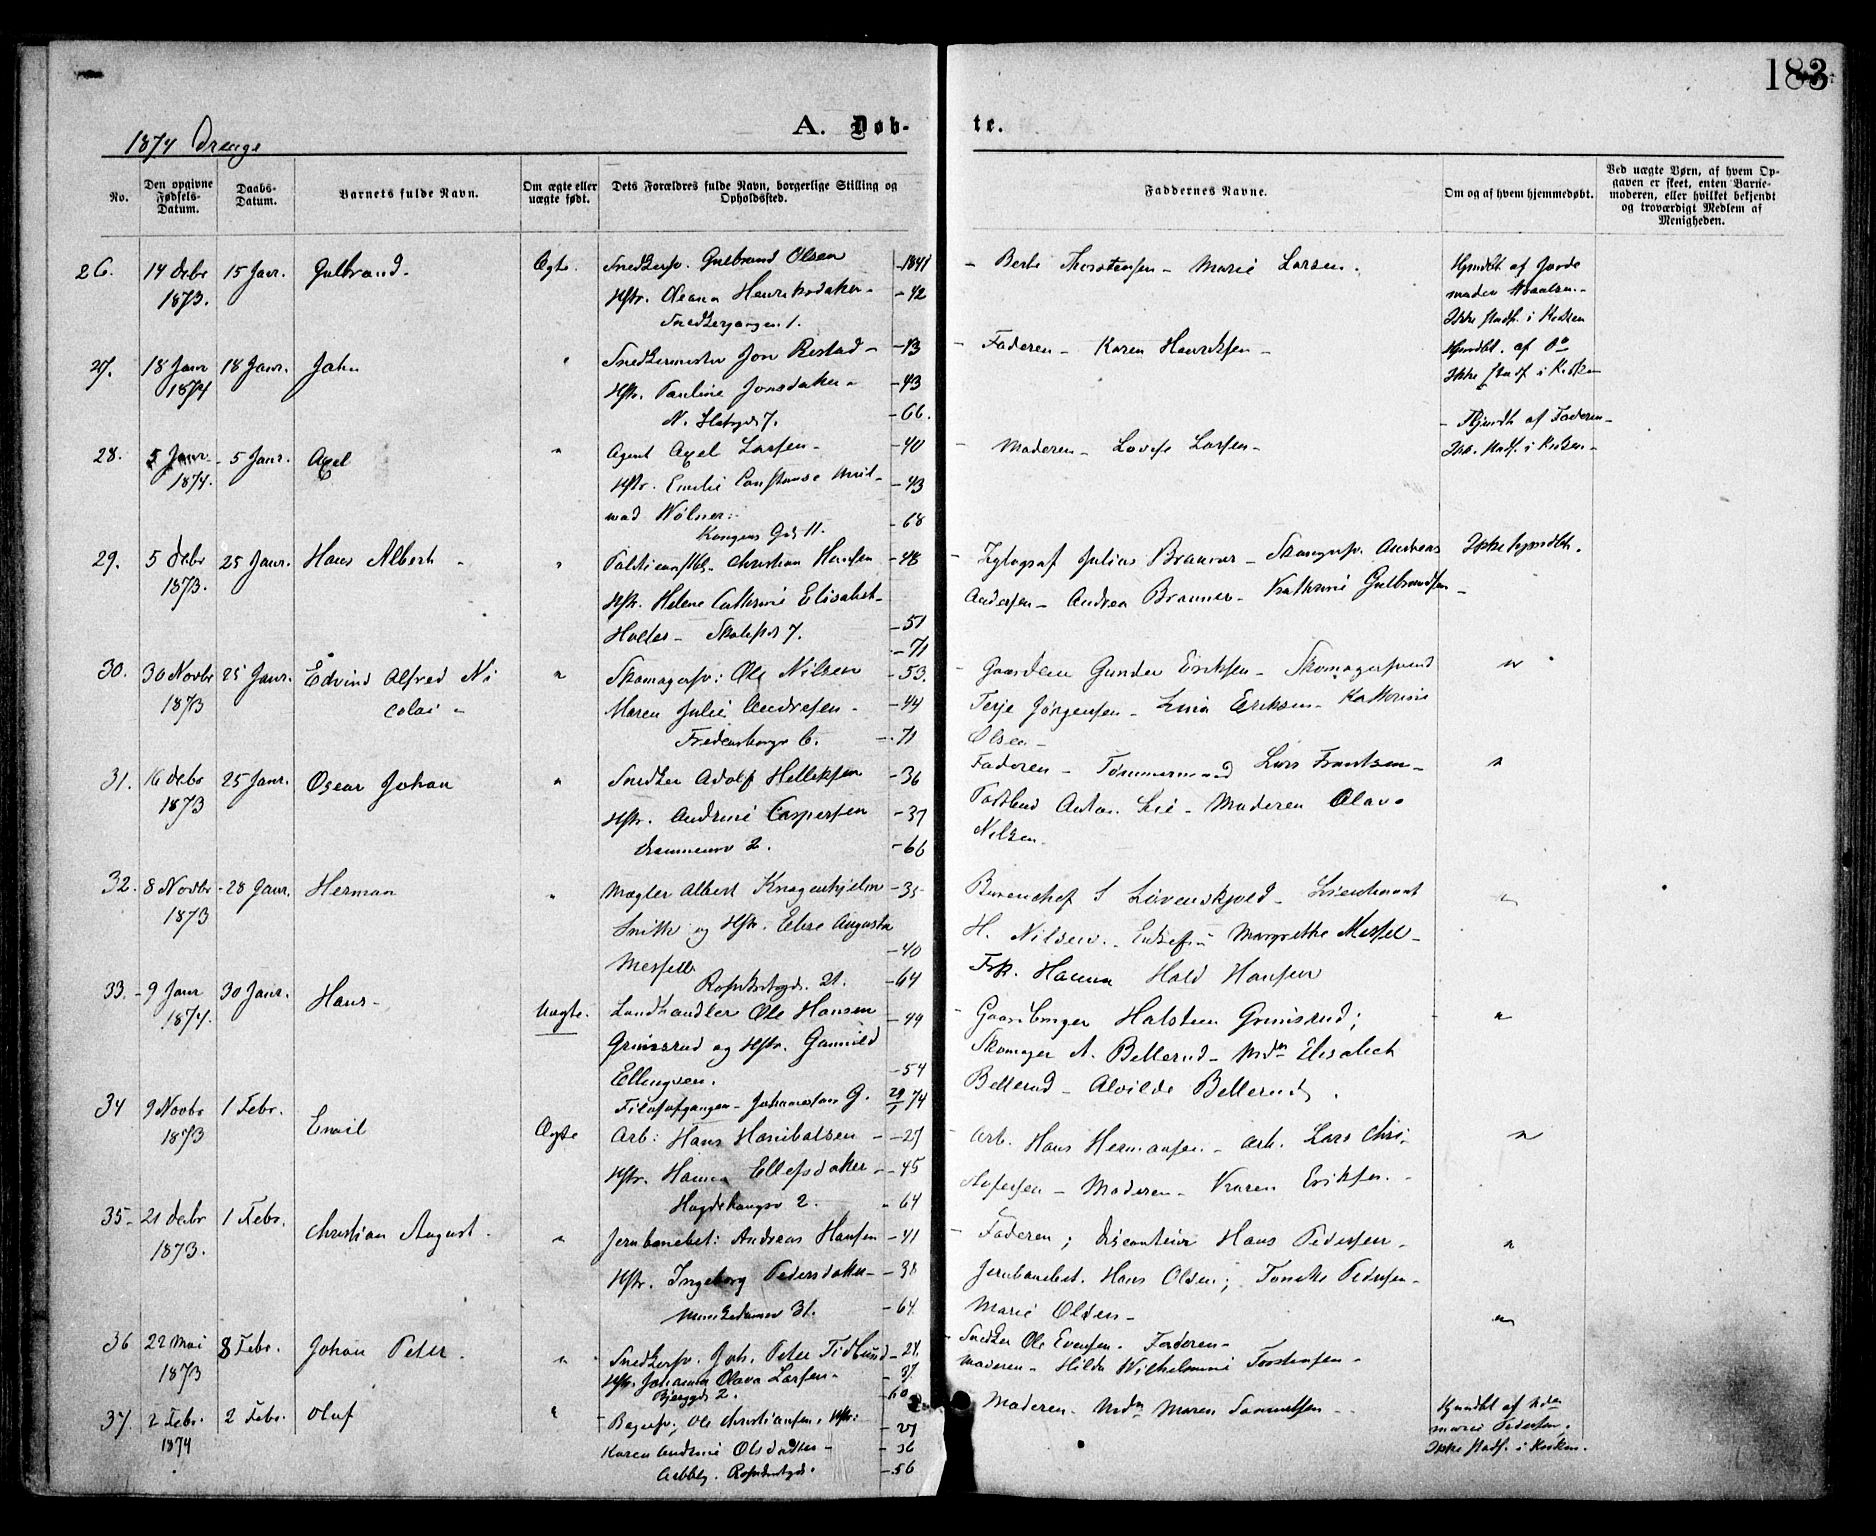 183
1874 Drenge
A. Døb-
te.
No.
Den opgivne Fødsels-Datum.
Daabs-Datum.
Barnets fulde Navn.
Om ægte eller uægte født.
Dets Forældres fulde Navn, borgerlige Stilling og Opholdssted.
Faddernes Navne.
Om og af hvem hjemmedøbt.
Ved uægte Børn, af hvem Op-
gaven er skeet, enten Barne-
moderen, eller hvilket bekjendt
og troværdigt Medlem af
Menigheden.
26. 14 Debr 15 Janr. Gulbrand Ægte. Snedkersv. Gulbrand Olsen - 1841 - Berte Thorstensen - Marie Larsen. Hjmdbt af Jorde
1873. Hstr. Oleana Henriksdatter - 42 moder
Snedkergangen 1. Ikke stadf. i Kirken
27. 18 Janr 18 Janr. John " Snedkermester Jon Restad - 43 - Faderen - Karen Henriksen - Hjmdbt. af Do
1874 Hstr. Pauline Jonsdatter - 43 Ikke stadf i Kirken
7. - 66.
28. 5 Janr. - 5 Janr. Axel " Agent Axel Larsen - 40 - Moderen - Lovise Larsen - - Hjmdt af Faderen -
1874. Hstr. Emilie Constanse - 43 Ikke stadf. i Kirken -
Wølner.
Kongens Gd. 11. - 68
29. 5 Debr 25 Janr. Hans Albert - " 168. Christian Hansen - 48 - Xylograf Julius Brauner - Andreas Ikke hjmdbt.
1873. Hstr. Helene Cathrine Elisabet Andersen - Andrea Brauner - Kathrine Gulbrandsen -
Holter - 7. - 51
- 71
30. 30 Novbr 25 Janr. Edvind Alfred Ni " Skomagersv: Ole Nilsen - 53. - Gunder Eriksen - Skomagersvend "
1873 colai - Maren Julie Andresen - - 44 Terje Jørgensen - Lina Eriksen - Kathrine
Fredensborgv 6. - 71 Olsen -
31. 16 Debr 25 Janr. Oscar Johan " Snedker Adolf Helleksen - 36 Faderen - Tømmermand Lars Frantsen - "
1873 Hstr. Andrine Caspersen - 37 Postbud Anton Lie - Moderen Olava
Drammensv 2. - 66 Nilsen.
32. 8 Novbr - 28 Janr. Herman " Mægler Albert Knagenhjelm - 35 Bureauchef S Løvenskjold - Lieutenant "
1873 Smith og Hstr. Elise Augusta H. Nilsen. Margrethe Messel -
Messell - 40 Frk. Hanna Hold Hansen
21. - 64
33. - 9 Janr 30 Janr. Hans - Uægte. Landhandler Ole Hansen - 44 - Gaardbruger Halsten Grinisrud; "
1874. Grinisrud og Hstr. Gunnild Skomager A. Bellerud - Mdm Elisabeth
Ellingsen. - 54 Bellerud - Alvilde Bellerud.
Filosofgangen - G. 29/1 74
34 9 Novbr 1 Febr. Emil Ægte Arb: Hans Hanibalsen - - 27 - Arb. Hans Hermansen - Arb. Lars Chri- "
1873 Hstr. Hanna Ellefsdatter - 45 stofersen - Moderen - Karen Eriksen. -
Hagdehaugsv 2. - 64
35 - 21 Debr 1 Febr. Christian August. " Jernbanebet: Andreas Hansen - 41 - Faderen; Hans Pedersen - "
1873. Hstr. Ingeborg Pedersdatter - 38 Jernbanebet. Hans Olsen; Pedersen -
Munkedamsv 31. - 64 Marie Olsen -
36 22 Mai 8 Febr. Johan Peter. " Snedkersv. Joh. Peter Tidlund - 24. - Snedker Ole Evensen. Faderen - "
1873 Hstr. Johanna Olava Larsen - - 37. Moderen - Hilda Wilhelmine Torstensen -
Bjerggd 2. - 60
37. 2 Febr. 2 Febr. Oluf " - Bagersv; Ole Christiansen, Hstr: - 27 Moderen. Mdm Maren Samuelsen - Hjmdbt af Mdm
1874 Karen Andrine Olsdatter - - 36 Marie Pedersen.
- 56 Ikke stadf. i Kirken.